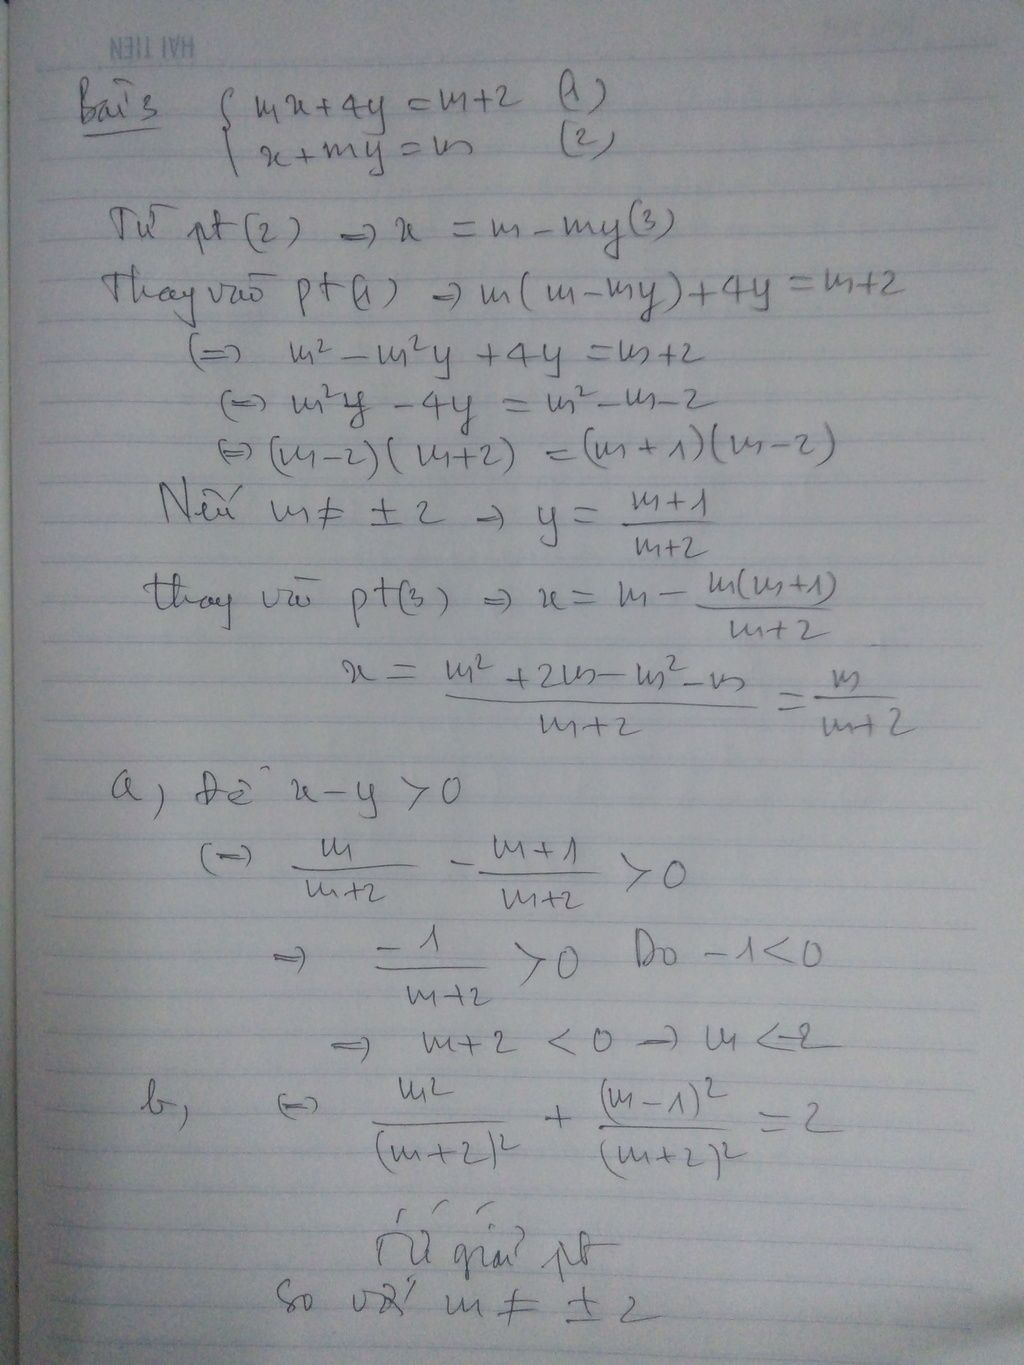 HẢI TIẾN
Bài 3 { mx + 4y = m+2 (1)
x + my = m (2)
Từ pt(2) => x = m - my (3)
Thay vào pt(1) => m(m - my) + 4y = m+2
(=) m² - m²y + 4y = m+2
(=) m²y - 4y = m² - m - 2
(=) (m-2)(m+2) = (m+1)(m-2)
Nếu m ≠ ±2 => y = \frac{m+1}{m+2}
thay vào pt(3) => x = m - \frac{m(m+1)}{m+2}
x = \frac{m² + 2m - m² - m}{m+2} = \frac{m}{m+2}
a, Để x - y > 0
(=) \frac{m}{m+2} - \frac{m+1}{m+2} > 0
=> \frac{-1}{m+2} > 0 Do -1 < 0
=> m+2 < 0 -> m < -2
b, (=) \frac{m²}{(m+2)²} + \frac{(m-1)²}{(m+2)²} = 2
giải pt
So với m ≠ ±2